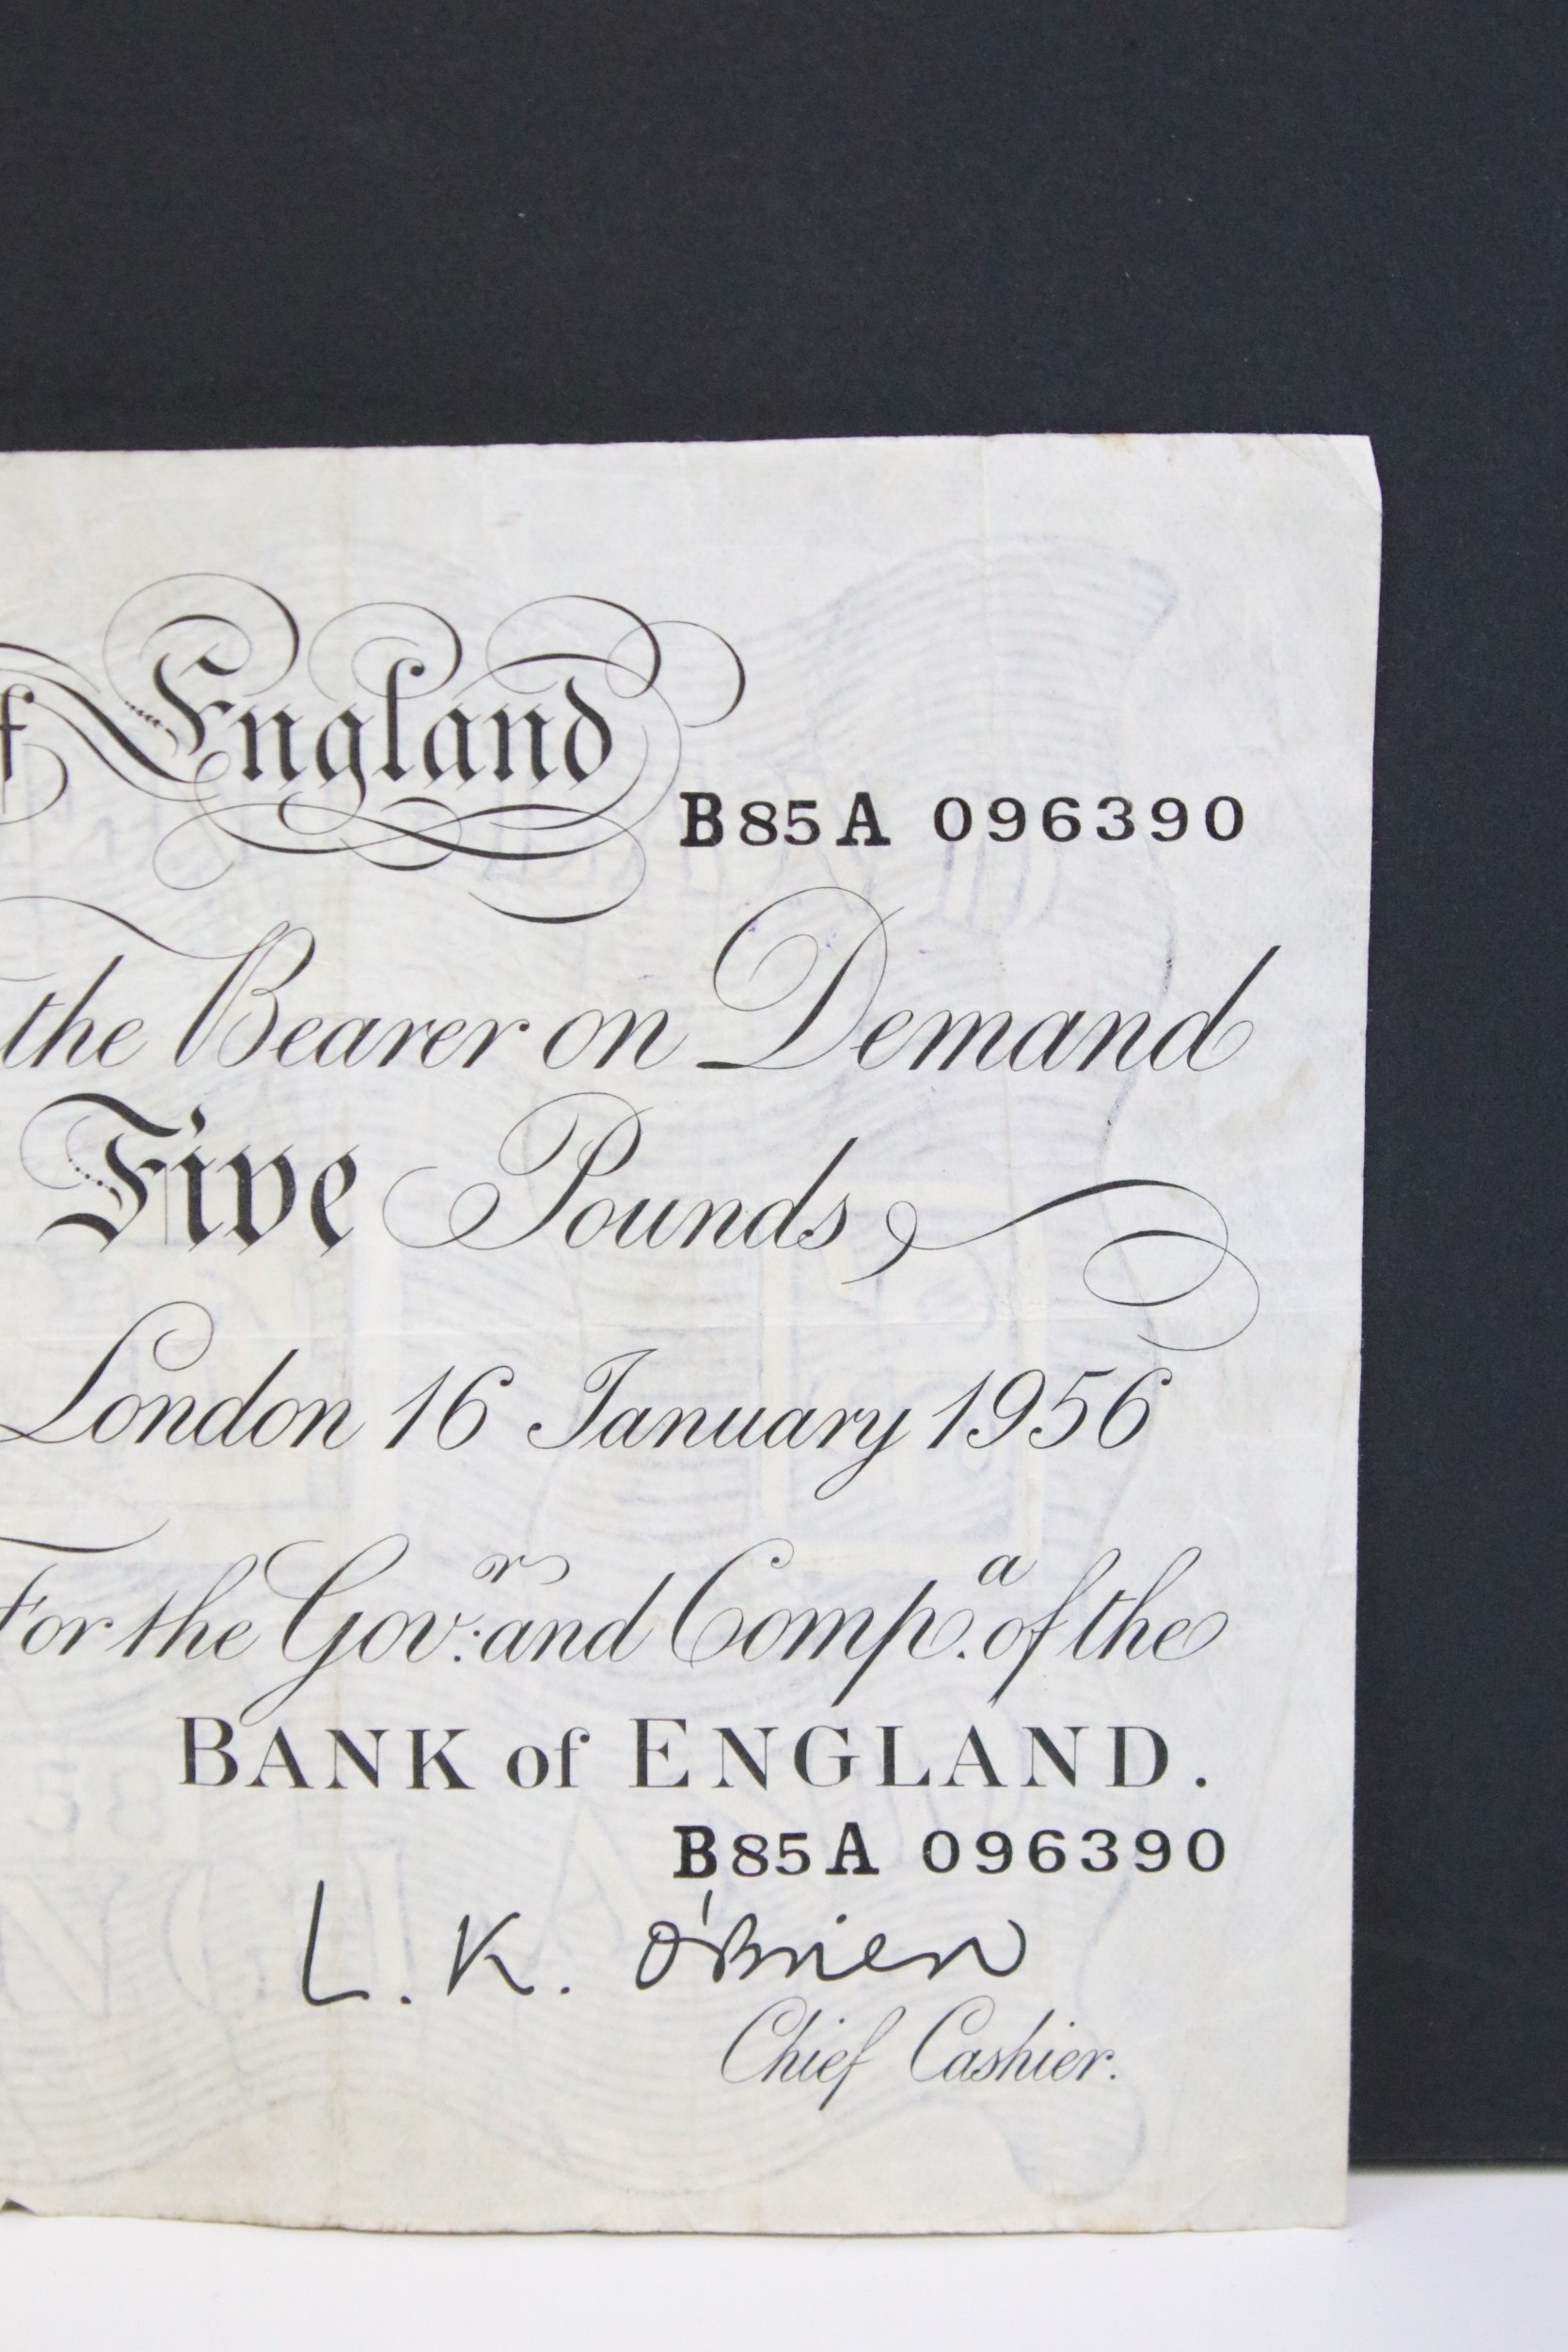 of England
B85A 096390
the Bearer on Demand
Five Pounds
London 16 January 1956
For the Gov:r and Comp.a of the
BANK of ENGLAND.
B85A 096390
L. K. O'Brien
Chief Cashier.